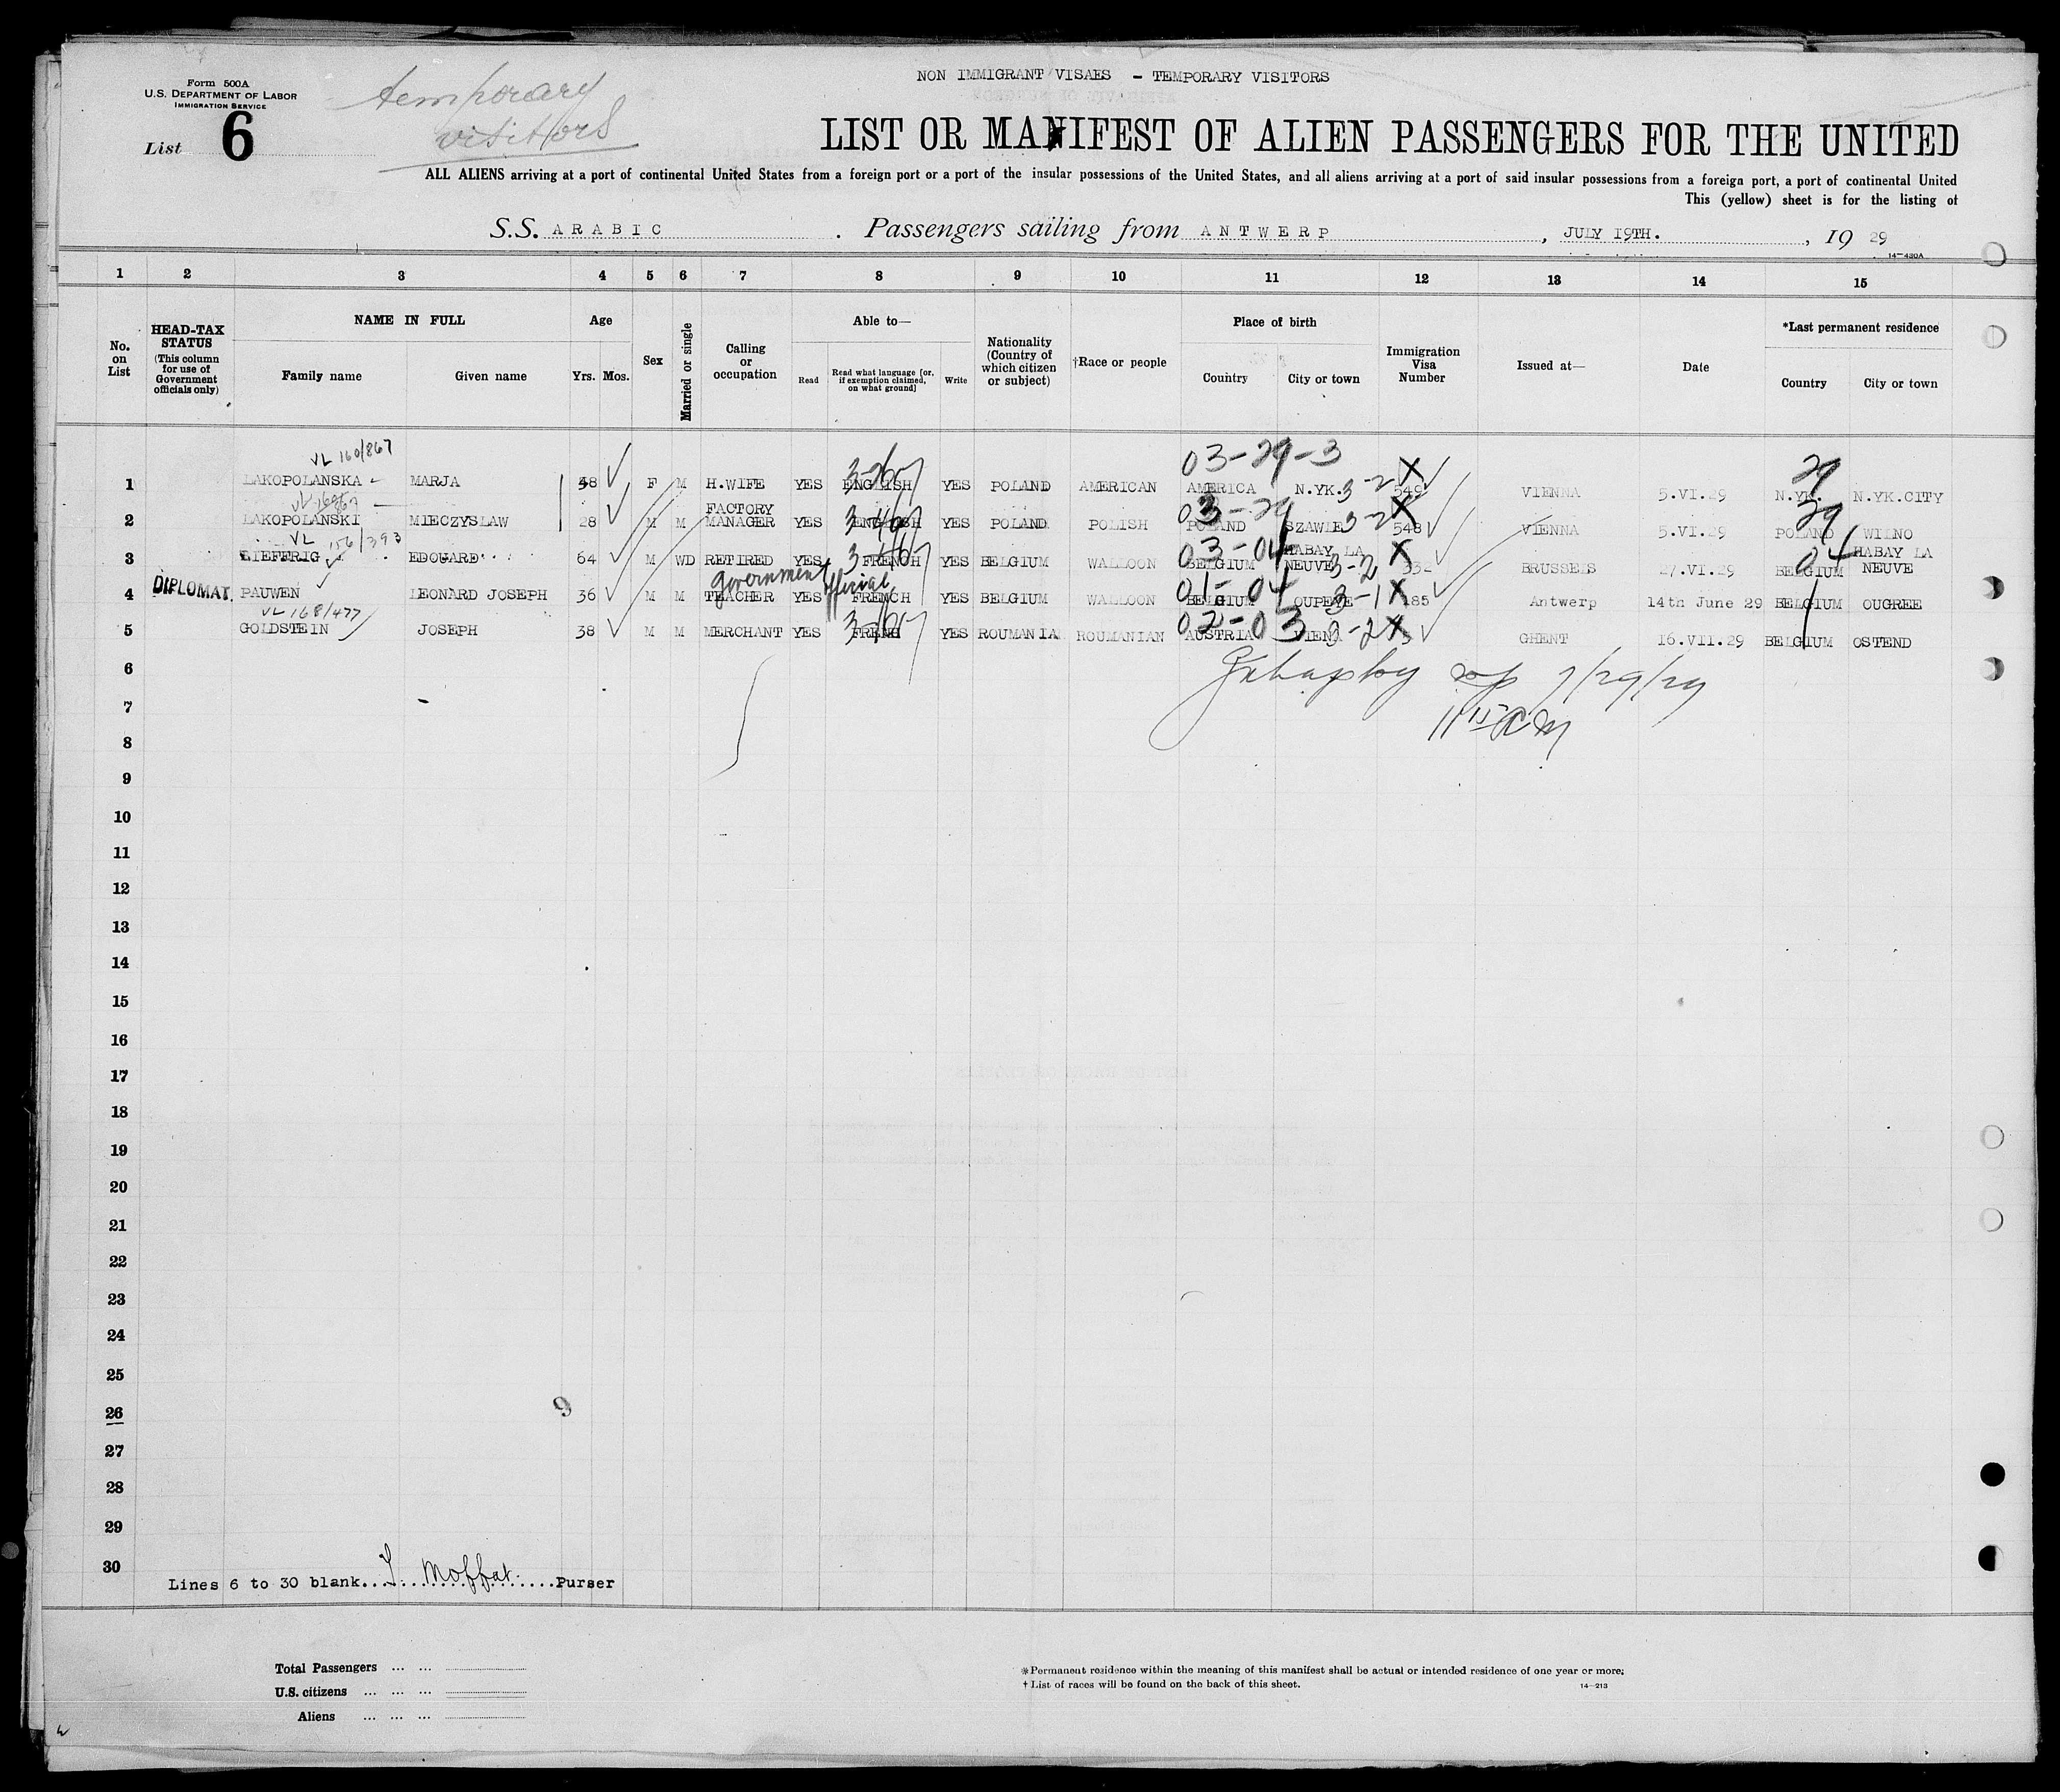 NON IMMIGRANT VISAES - TEMPORARY VISITORS
Form 500A
U.S. DEPARTMENT OF LABOR
IMMIGRATION SERVICE
List 6
temporary
visitors
LIST OR MANIFEST OF ALIEN PASSENGERS FOR THE UNITED
ALL ALIENS arriving at a port of continental United States from a foreign port or a port of the insular possessions of the United States, and all aliens arriving at a port of said insular possessions from a foreign port, a port of continental United
This (yellow) sheet is for the listing of
S.S. ARABIC . Passengers sailing from ANTWERP , JULY 19TH. , 19 29
14—430A
1 2 3 4 5 6 7 8 9 10 11 12 13 14 15
No. on List
HEAD-TAX STATUS
(This column for use of Government officials only)
NAME IN FULL
Family name Given name
Age
Yrs. Mos.
Sex
Married or single
Calling or occupation
Able to—
Read
Read what language [or, if exemption claimed, on what ground]
Write
Nationality (Country of which citizen or subject)
†Race or people
Place of birth
Country City or town
Immigration Visa Number
Issued at—
Date
*Last permanent residence
Country City or town
VL 160/867 03-29-3 29
1 LAKOPOLANSKA MARJA F M H.WIFE YES ENGLISH YES POLAND AMERICAN AMERICA N.YK. 3-2 549 VIENNA 5.VI.29 N.YK. N.YK.CITY
2 LAKOPOLANSKI MIECZYSLAW 28 M M FACTORY MANAGER YES ENGLISH YES POLAND POLISH POLAND SZAWLE 3-2 548 VIENNA 5.VI.29 POLAND WILNO
VL 156/393
3 LIEFFRIG EDOUARD 64 M WD RETIRED YES FRENCH YES BELGIUM WALLOON BELGIUM HABAY LA NEUVE 3-2 BRUSSELS 27.VI.29 BELGIUM HABAY LA NEUVE
Government official
DIPLOMAT.
4 PAUWEN LEONARD JOSEPH 36 M M TEACHER YES FRENCH YES BELGIUM WALLOON BELGIUM OUPEYE 3-1 185 Antwerp 14th June 29 BELGIUM OUGREE
VL 168/477 02-03
5 GOLDSTEIN JOSEPH 38 M M MERCHANT YES FRENH YES ROUMANIA ROUMANIAN AUSTRIA VIENA 3-2 GHENT 16.VII.29 BELGIUM OSTEND
6
7/29/29
7
8
9
10
11
12
13
14
15
16
17
18
19
20
21
22
23
24
25
26
9
27
28
29
30
Lines 6 to 30 blank.... Moffat ....Purser
Total Passengers ... ...
U.S. citizens ... ... ...
Aliens ... ... ...
*Permanent residence within the meaning of this manifest shall be actual or intended residence of one year or more.
† List of races will be found on the back of this sheet.
14—213